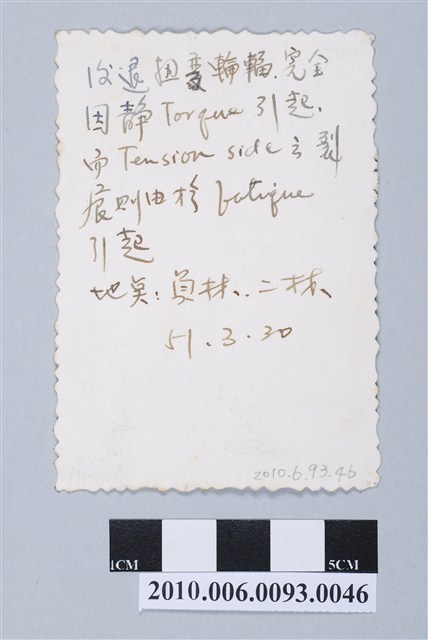 後退扭轉輪輻.完全
因静 Torque 引起.
而 Tension side 之裂
痕則由於 fatigue
引起
地點：員林、二林
51.3.30
2010.6.93.46
1CM 5CM
2010.006.0093.0046